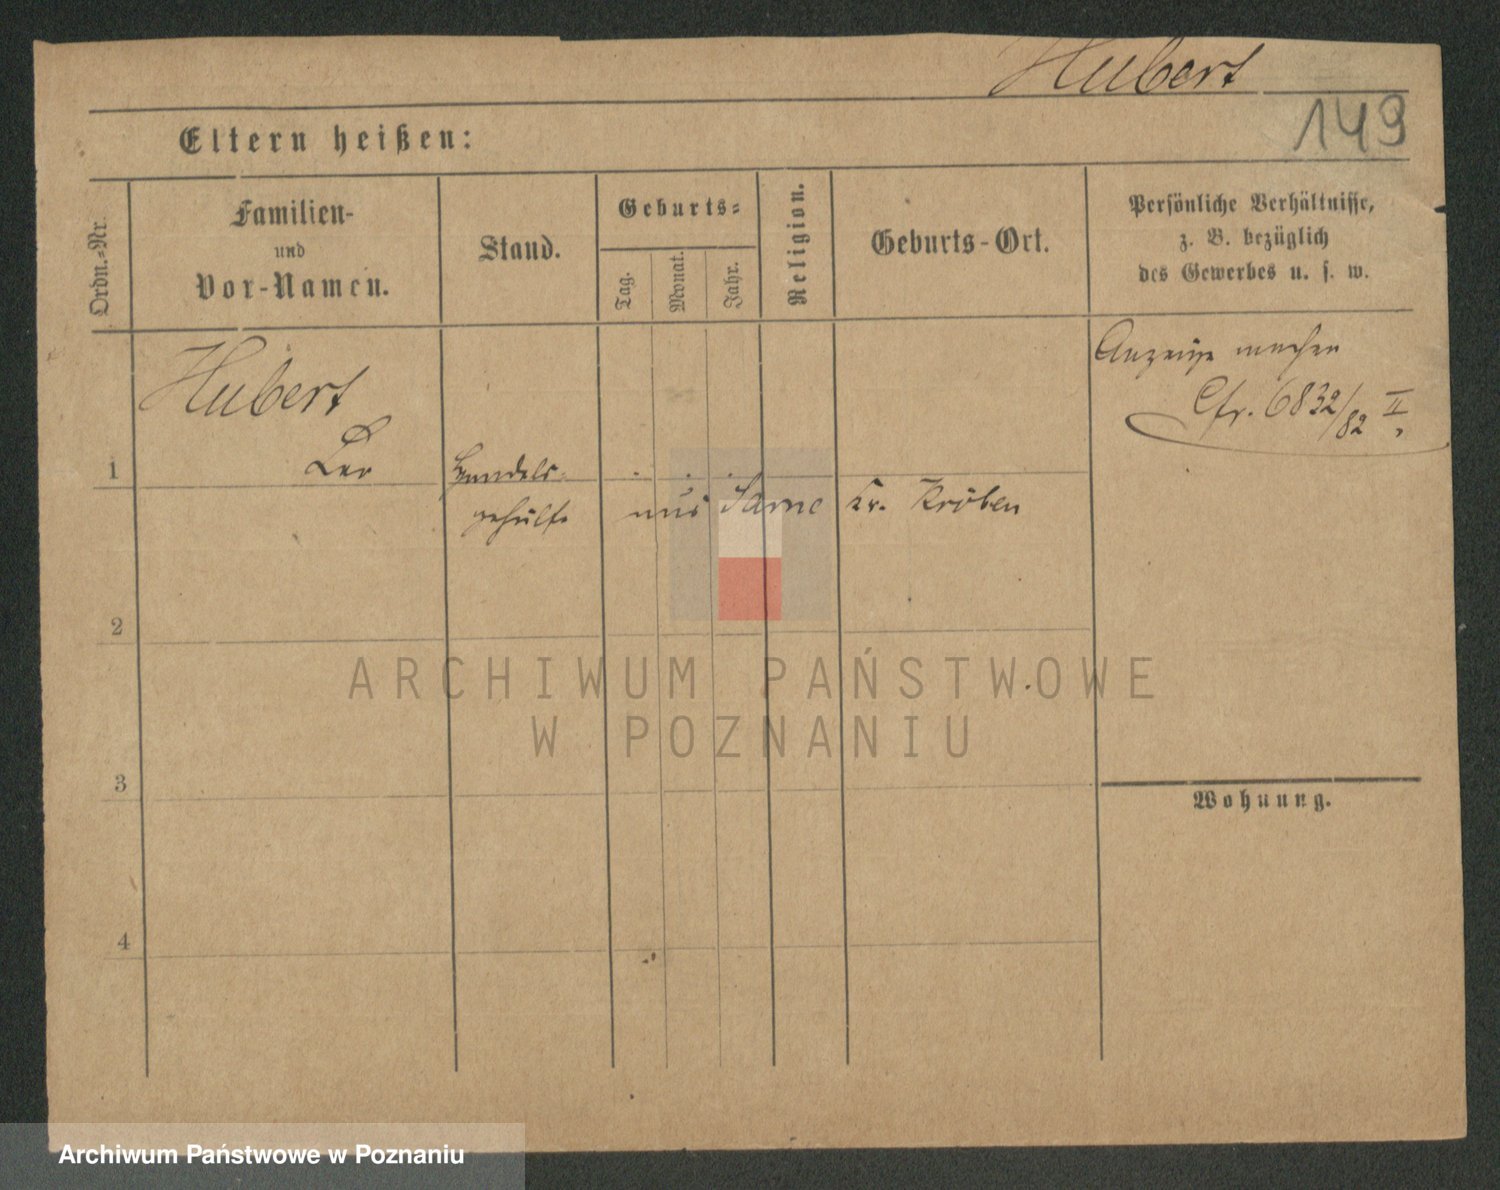 Hubert
149
Eltern heißen:
Ordn.-Nr.
Familien-
und
Vor-Namen.
Stand.
Geburts-
Tag.
Monat.
Jahr.
Religion.
Geburts-Ort.
Persönliche Verhältnisse,
z. B. bezüglich
des Gewerbes u. s. w.
Anzeige machen
Cfr. 6832/82 II.
Hubert
1
Leo
Handels-
gehülfe
aus Sarne Kr. Kröben
2
3
4
Wohnung.
ARCHIWUM PAŃSTWOWE
W POZNANIU
Archiwum Państwowe w Poznaniu